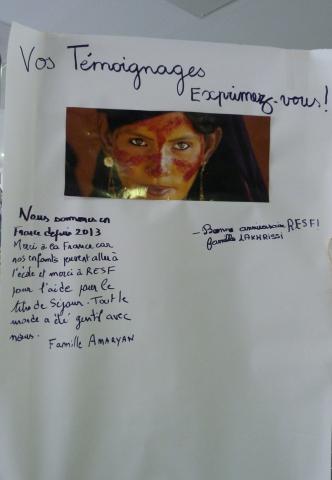 Vos Témoignages
Exprimez-vous!
Nous sommes en
France depuis 2013
Merci à la France car
nos enfants peuvent aller à
l'école et merci à RESF
pour l'aide pour le
titre de séjour. Tout le
monde a été gentil avec
nous.
Famille AMARYAN
- Bonne anniversaire RESF!
famille LAKHRISSI